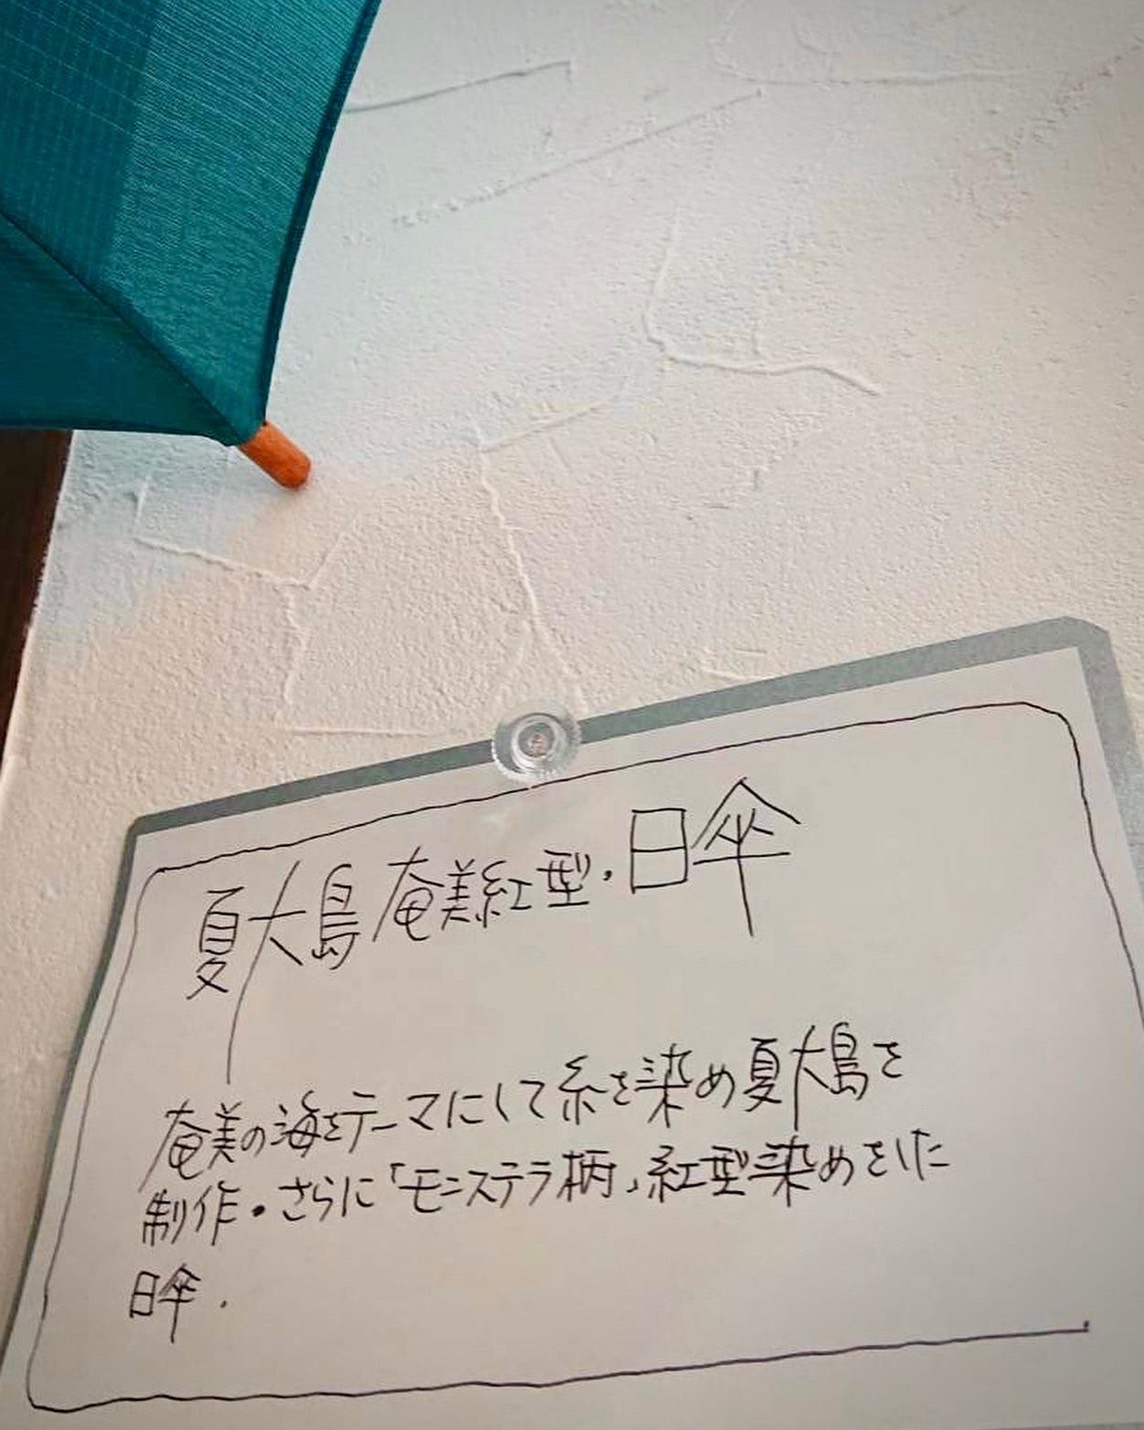 夏大島 奄美紅型・日傘
奄美の海をテーマにして糸を染め夏大島を
制作。さらに「モンステラ柄」紅型染めをした
日傘.